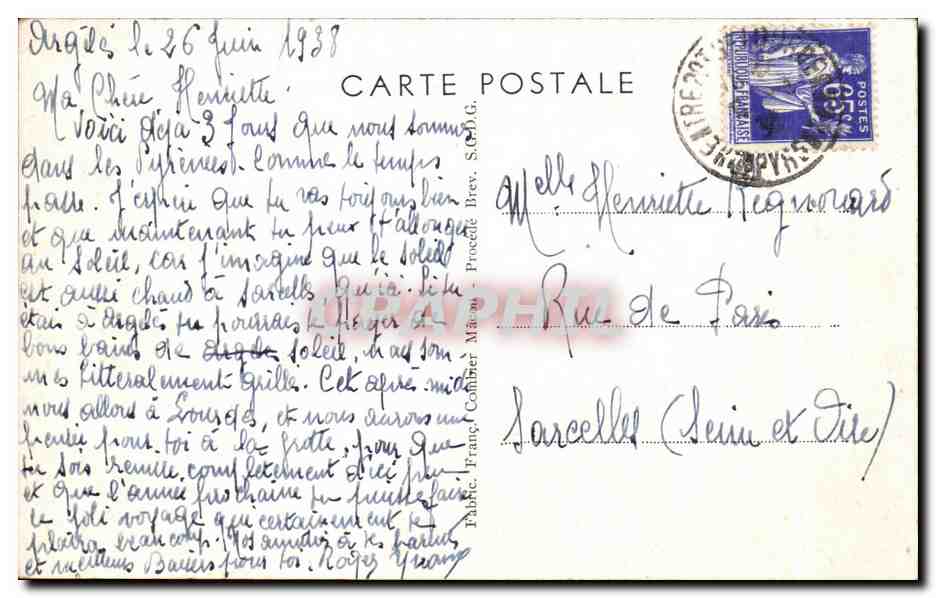 Argelès le 26 Juin 1938
CARTE POSTALE
Ma Chère Henriette.
Voici déjà 3 jours que nous sommes
dans les Pyrénées. Comme le temps
passe. J'espère que tu vas toujours bien
et que maintenant tu peux t'allonger
au soleil, car j'imagine que le soleil
est aussi chaud à Sarcelles qu'ici. Si tu
étais à Argelès tu pourrais te payer de
bons bains de soleil, nous som-
mes littéralement grillés. Cet après midi
nous allons à Lourdes, et nous aurons une
pensée pour toi à la grotte, pour que
tu sois remise complètement d'ici peu
et que l'année prochaine tu puisses faire
ce joli voyage qui certainement te
plaira beaucoup. Nos amitiés à tes parents
et meilleurs Baisers pour toi. Roger
Fabric. Franç. Combier Macon - Procédé Brev. S.G.D.G.
REPUBLIQUE FRANÇAISE
POSTES
65c
Melle Henriette Regnouard
Rue de Paris
Sarcelles (Seine et Oise)